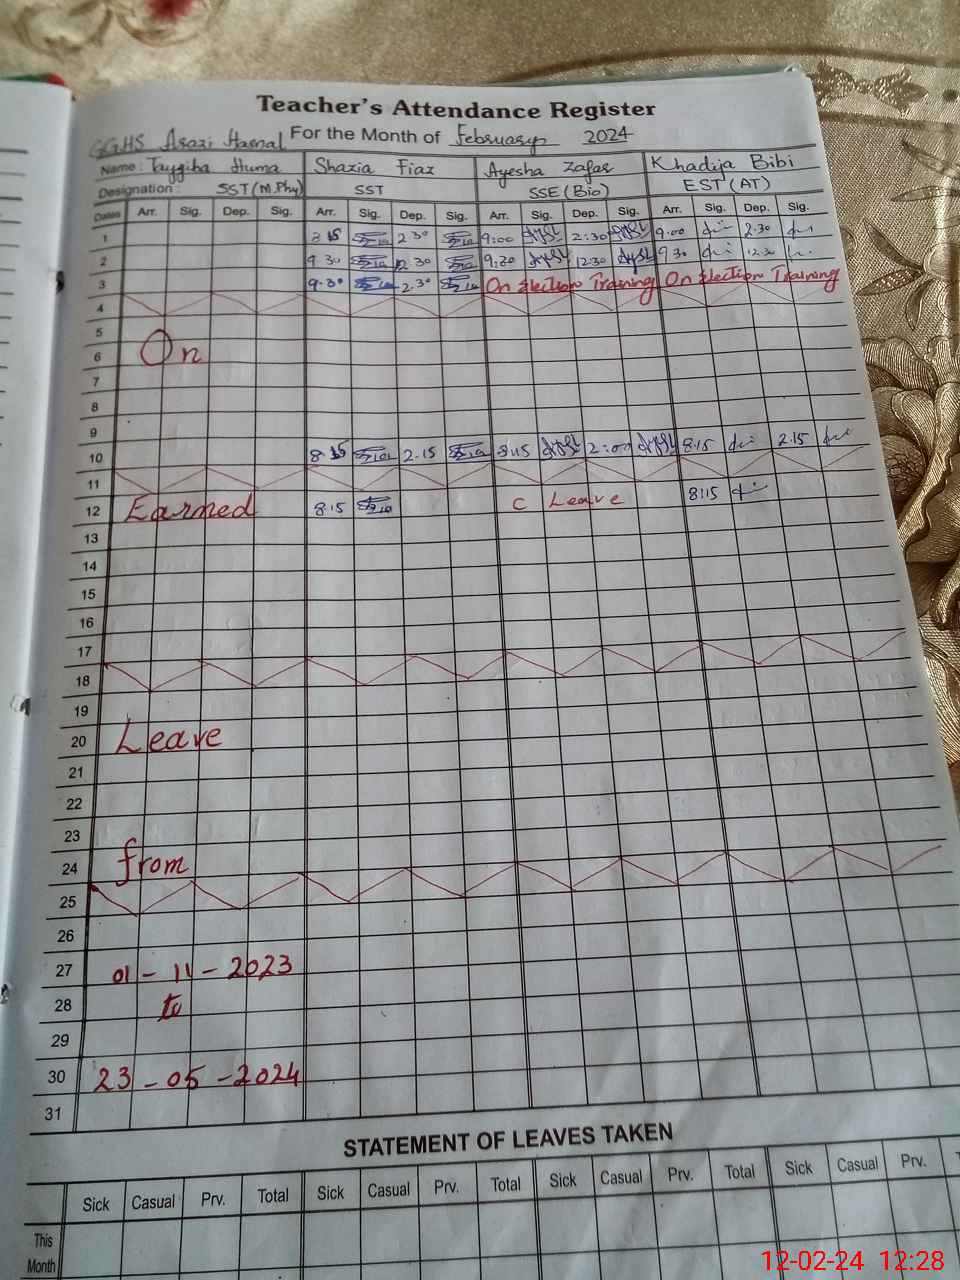 Teacher's Attendance Register
GGHS Arazi Hasnal For the Month of February 2024
Name: Tayyiba Huma Shazia Fiaz Ayesha Zafar Khadija Bibi
Designation: SST (M.Phy) SST SSE (Bio) EST (AT)
Dates Arr. Sig. Dep. Sig. Arr. Sig. Dep. Sig. Arr. Sig. Dep. Sig. Arr. Sig. Dep. Sig.
1 8 15 2 30 9:00 2:30 9.00 2.30
2 9 30 12 30 9:30 12:30 9 30 12.30
3 9.30 2.30 On Election Training On Election Training
4
5
6 On
7
8
9
10 8.15 2.15 8:15 2:00 8.15 2.15
11
12 Earned 8.15 C Leave 8:15
13
14
15
16
17
18
19
20 Leave
21
22
23
24 from
25
26
27 01-11-2023
28 to
29
30 23-05-2024
31
STATEMENT OF LEAVES TAKEN
Sick Casual Prv. Total Sick Casual Prv. Total Sick Casual Prv. Total Sick Casual Prv.
This
Month
12-02-24 12:28